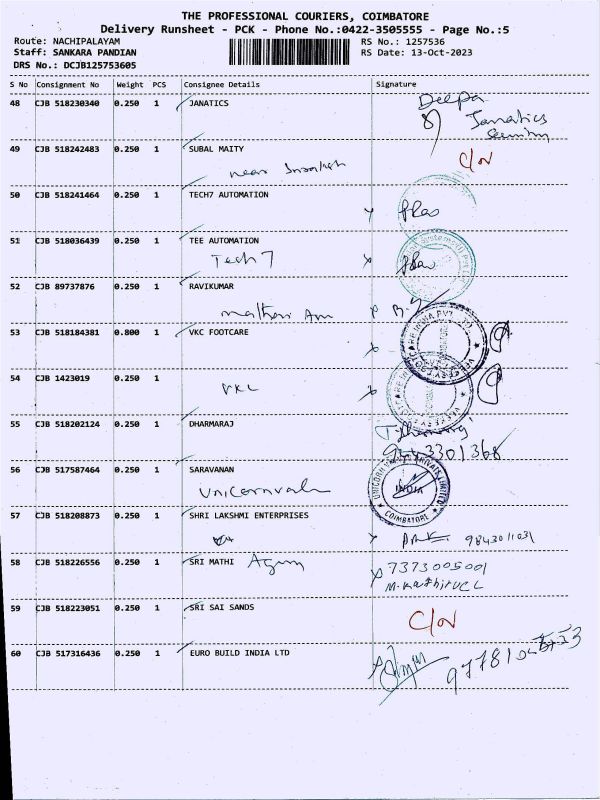 THE PROFESSIONAL COURIERS, COIMBATORE
Delivery Runsheet - PCK - Phone No.:0422-3505555 - Page No.:5
Route: NACHIPALAYAM RS No.: 1257536
Staff: SANKARA PANDIAN RS Date: 13-Oct-2023
DRS No.: DCJB125753605
S No Consignment No Weight PCS Consignee Details Signature
48 CJB 518230340 0.250 1 JANATICS Deepa
Janatics
49 CJB 518242483 0.250 1 SUBAL MAITY C/N
near
50 CJB 518241464 0.250 1 TECH7 AUTOMATION
51 CJB 518036439 0.250 1 TEE AUTOMATION
Tech 7
52 CJB 89737876 0.250 1 RAVIKUMAR
53 CJB 518184381 0.800 1 VKC FOOTCARE
54 CJB 1423019 0.250 1
VKC
55 CJB 518202124 0.250 1 DHARMARAJ
9443301368
56 CJB 517587464 0.250 1 SARAVANAN
INDIA
COIMBATORE
57 CJB 518208873 0.250 1 SHRI LAKSHMI ENTERPRISES
9843011031
58 CJB 518226556 0.250 1 SRI MATHI 7373005001
M. Kathirvel
59 CJB 518223051 0.250 1 SRI SAI SANDS C/N
60 CJB 517316436 0.250 1 EURO BUILD INDIA LTD